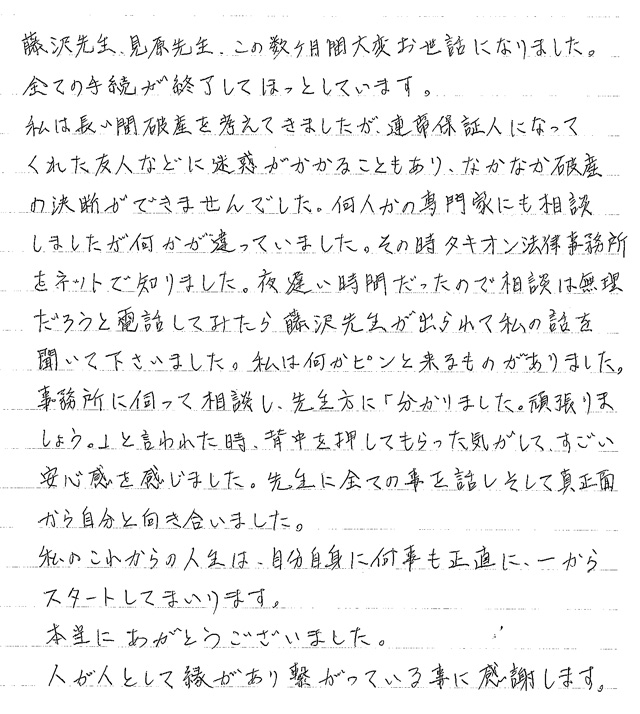 藤沢先生、見原先生、この数ヶ月間大変お世話になりました。
全ての手続が終了してほっとしています。
私は長い間破産を考えてきましたが、連帯保証人になって
くれた友人などに迷惑がかかることもあり、なかなか破産
の決断ができませんでした。何人かの専門家にも相談
しましたが何かが違っていました。その時タキオン法律事務所
をネットで知りました。夜遅い時間だったので相談は無理
だろうと電話してみたら藤沢先生が出られて私の話を
聞いて下さいました。私は何かピンと来るものがありました。
事務所に伺って相談し、先生方に「分かりました。頑張りま
しょう。」と言われた時、背中を押してもらった気がして、すごい
安心感を感じました。先生に全ての事を話しそして真正面
から自分と向き合いました。
私のこれからの人生は、自分自身に何事も正直に、一から
スタートしてまいります。
本当にありがとうございました。
人が人として縁があり繋がっている事に感謝します。